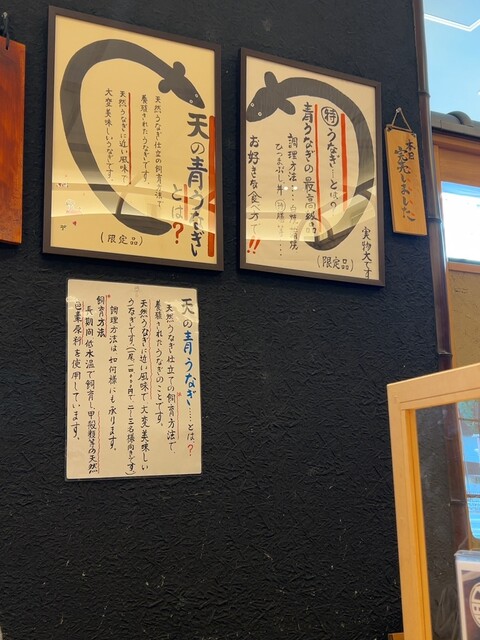 天の青うなぎ
とは?
天然うなぎ仕立の飼育方法で
養殖されたうなぎです。
天然うなぎに近い風味で
大変美味しいうなぎです。
(限定品)
特うなぎ…とは?
青うなぎの最高級品
調理方法…白焼・蒲焼
ひつまぶし・丼
お好きな食べ方で!!
(限定品)
実物大です
本日
完売しました
天の青うなぎ……とは?
天然うなぎ仕立ての飼育方法で、
養殖されたうなぎのことです。
天然うなぎに近い風味で大変美味しい
うなぎです。
調理方法は如何様にも承ります。
飼育方法
長期間低水温で飼育し、甲殻類等の天然
色素原料を使用しています。